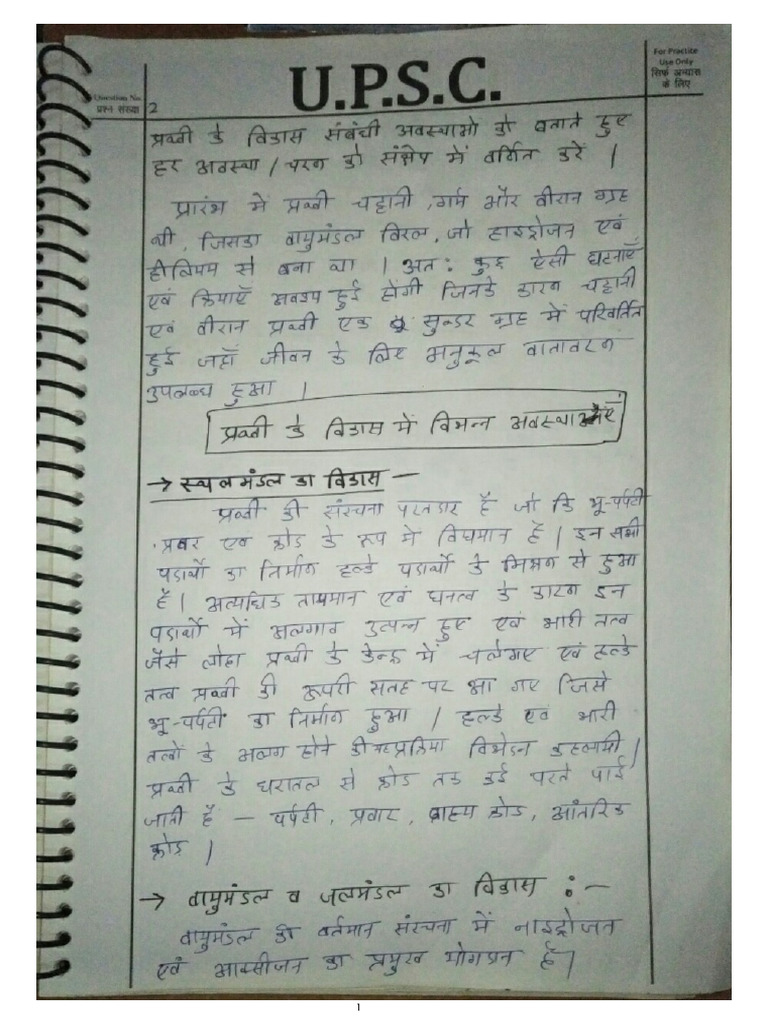 U.P.S.C.
For Practice
Use Only
सिर्फ अभ्यास
के लिए
Question No.
प्रश्न संख्या
2
पृथ्वी के विकास संबंधी अवस्थाओं को बताते हुए
हर अवस्था / चरण को संक्षेप में वर्णित करें |
प्रारंभ में पृथ्वी चट्टानी, गर्म और वीरान ग्रह
थी, जिसका वायुमंडल विरल, जो हाइड्रोजन एवं
हीलियम से बना था | अतः कुछ ऐसी घटनाएँ
एवं क्रियाएँ अवश्य हुई होंगी जिनके कारण चट्टानी
एवं वीरान पृथ्वी एक सुन्दर ग्रह में परिवर्तित
हुई जहाँ जीवन के लिए अनुकूल वातावरण
उपलब्ध हुआ |
पृथ्वी के विकास में विभन्न अवस्थाएँ
→ स्थलमंडल का विकास -
पृथ्वी की संरचना परतदार है जो कि भू-पर्पटी
प्रवार एवं क्रोड के रूप में विघमान है | इन सभी
पदार्थो का निर्माण हल्के पदार्थो के मिश्रण से हुआ
है | अत्यधिक तापमान एवं घनत्व के कारण इन
पदार्थो में अलगाव उत्पन्न हुए एवं भारी तत्व
जैसे लोहा पृथ्वी के केन्द्र में चलेगए एवं हल्के
तत्व पृथ्वी की ऊपरी सतह पर आ गए जिसे
भू-पर्पटी का निर्माण हुआ | हल्के एवं भारी
तत्वों के अलग होने की यह प्रक्रिया विभेदन कहलायी |
पृथ्वी के धरातल से क्रोड तक कई परतें पाई
जाती है - पर्पटी, प्रवार, बाह्य क्रोड, आंतरिक
क्रोड |
→ वायुमंडल व जलमंडल का विकास :-
वायुमंडल की वर्तमान संरचना में नाइट्रोजन
एवं आक्सीजन का प्रमुख योगदान है |
1